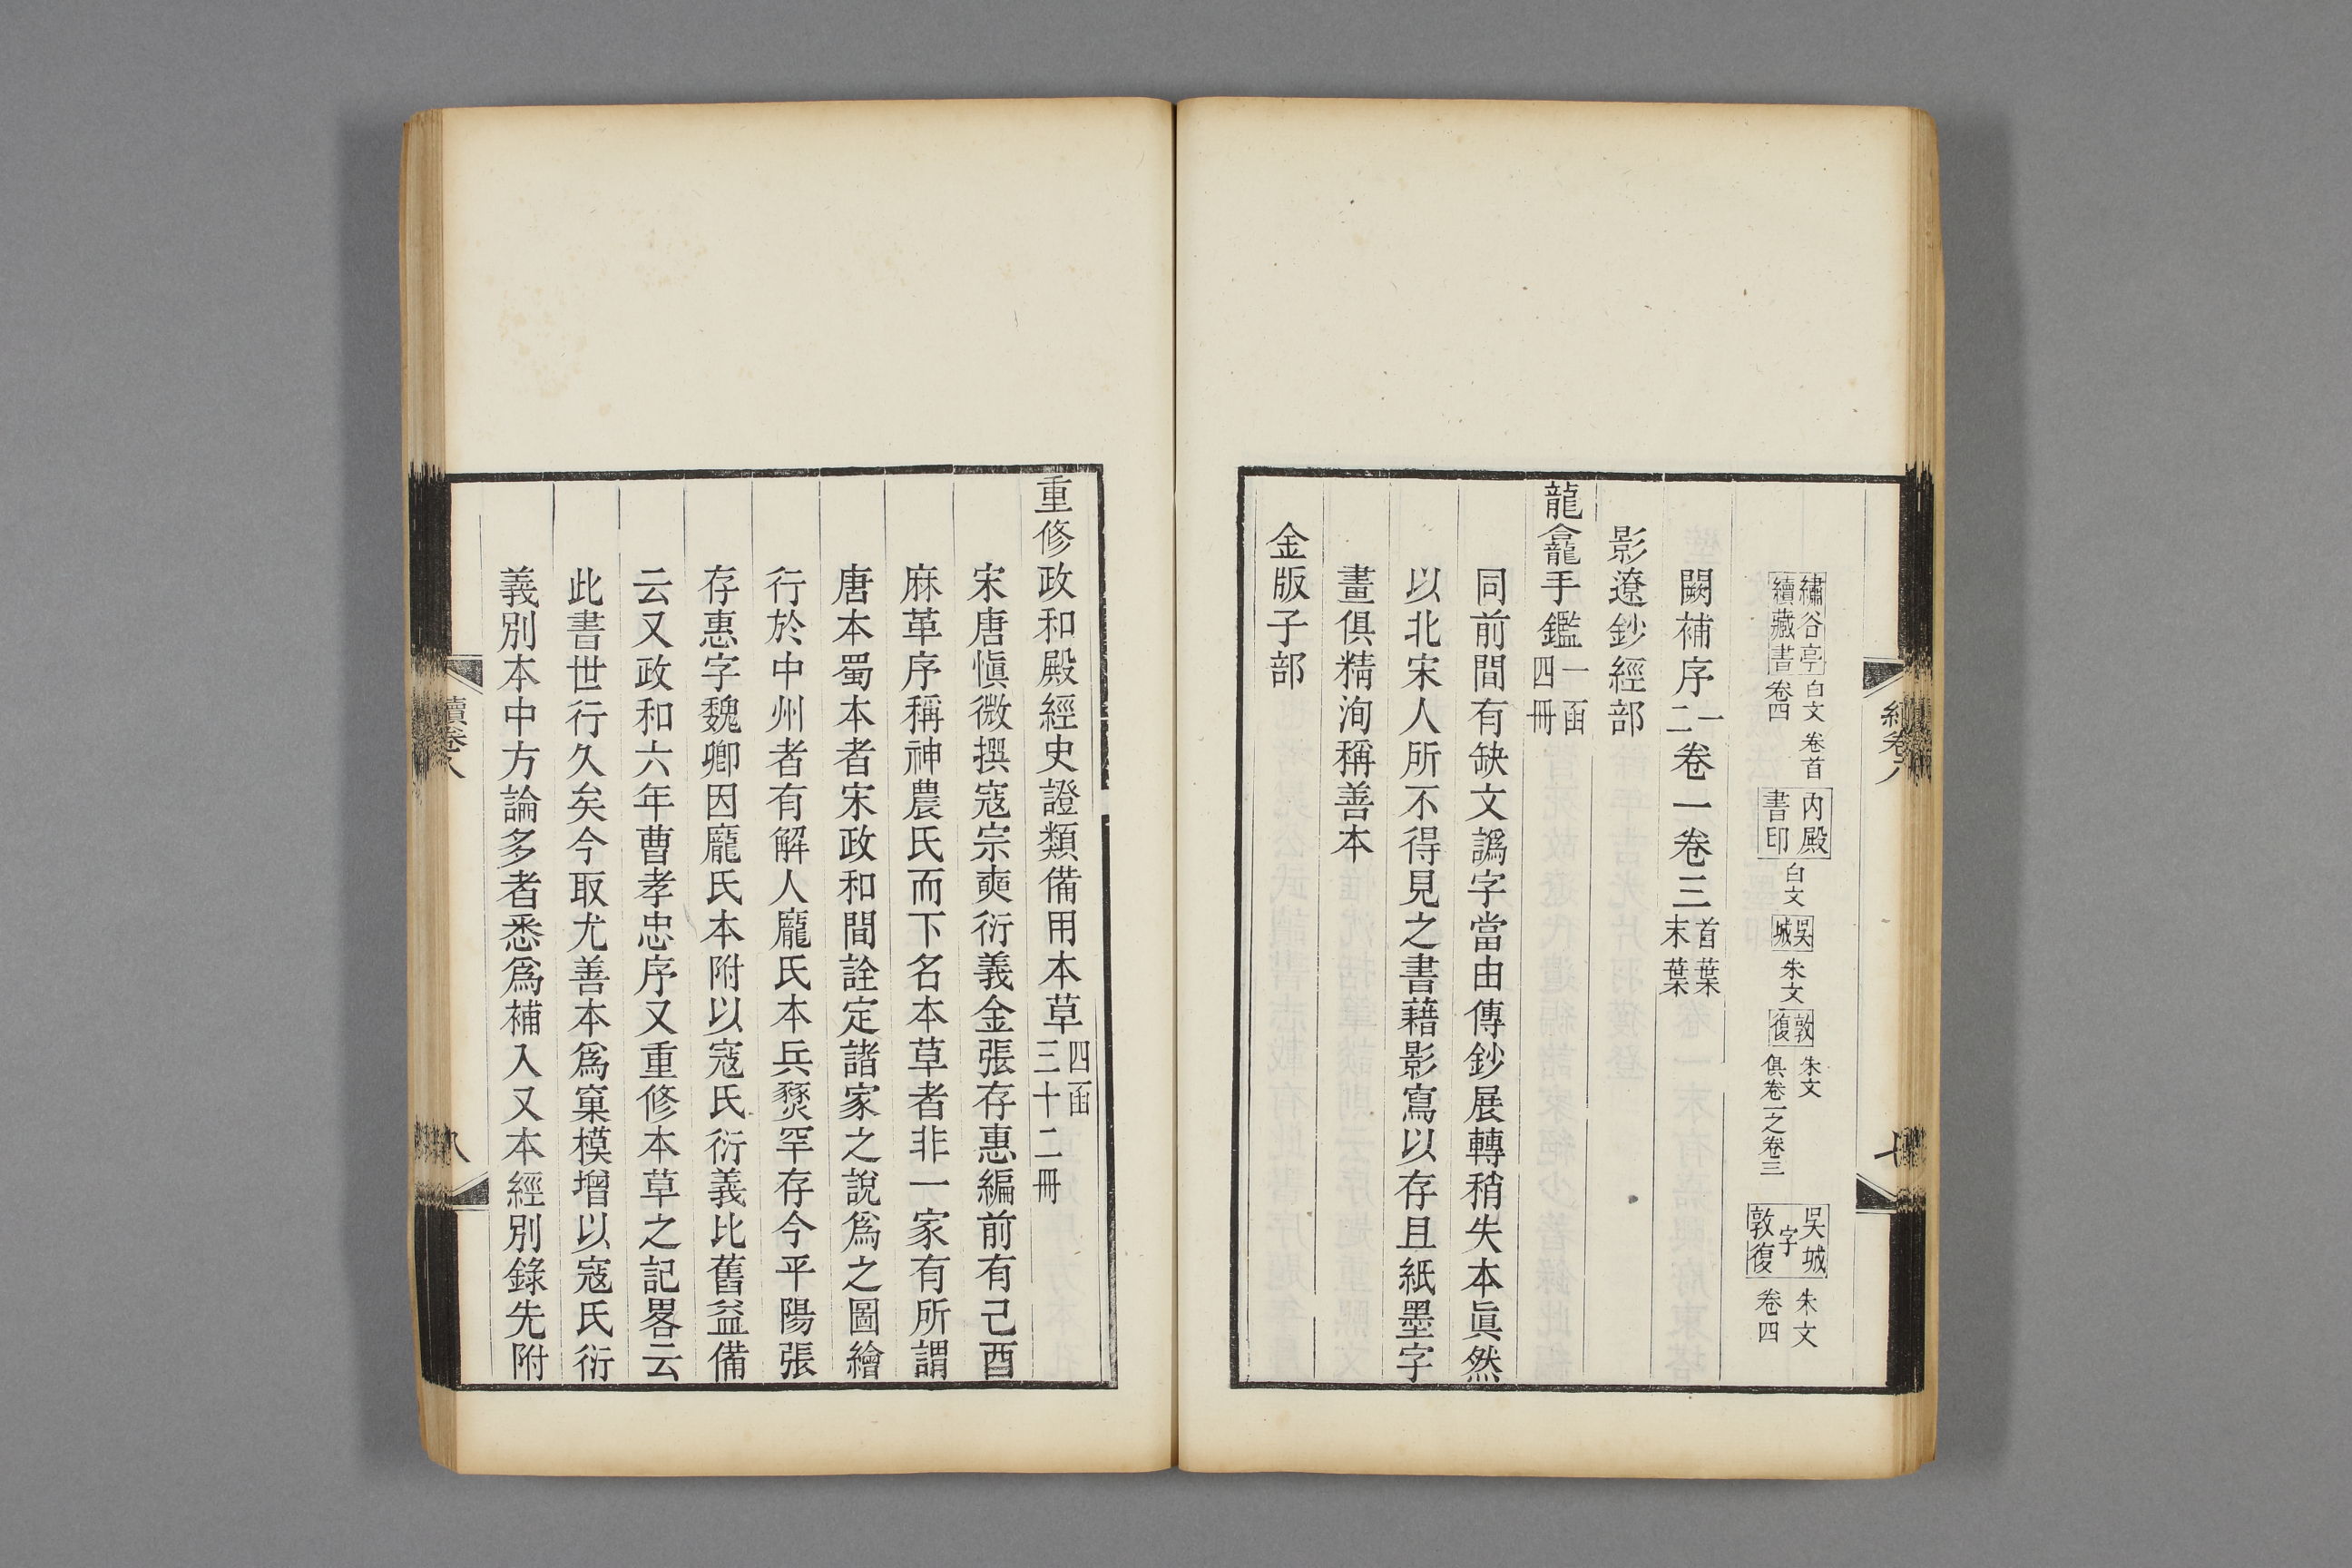 繡谷亭續藏書 白文 卷首 卷四 內殿書印 白文 吳城 朱文 敦復 朱文 俱卷一之卷三 吳城字敦復 朱文 卷四
闕補序一二卷一卷三首葉末葉
影遼鈔經部
龍龕手鑑一函四冊
同前間有缺文譌字當由傳鈔展轉稍失本眞然
以北宋人所不得見之書藉影寫以存且紙墨字
畫俱精洵稱善本
金版子部
重修政和殿經史證類備用本草四函三十二冊
宋唐愼微撰寇宗奭衍義金張存惠編前有己酉
麻革序稱神農氏而下名本草者非一家有所謂
唐本蜀本者宋政和間詮定諸家之說爲之圖繪
行於中州者有解人龐氏本兵燹罕存今平陽張
存惠字魏卿因龐氏本附以寇氏衍義比舊益備
云又政和六年曹孝忠序又重修本草之記畧云
此書世行久矣今取尤善本爲窠模增以寇氏衍
義別本中方論多者悉爲補入又本經別錄先附
續卷八
八